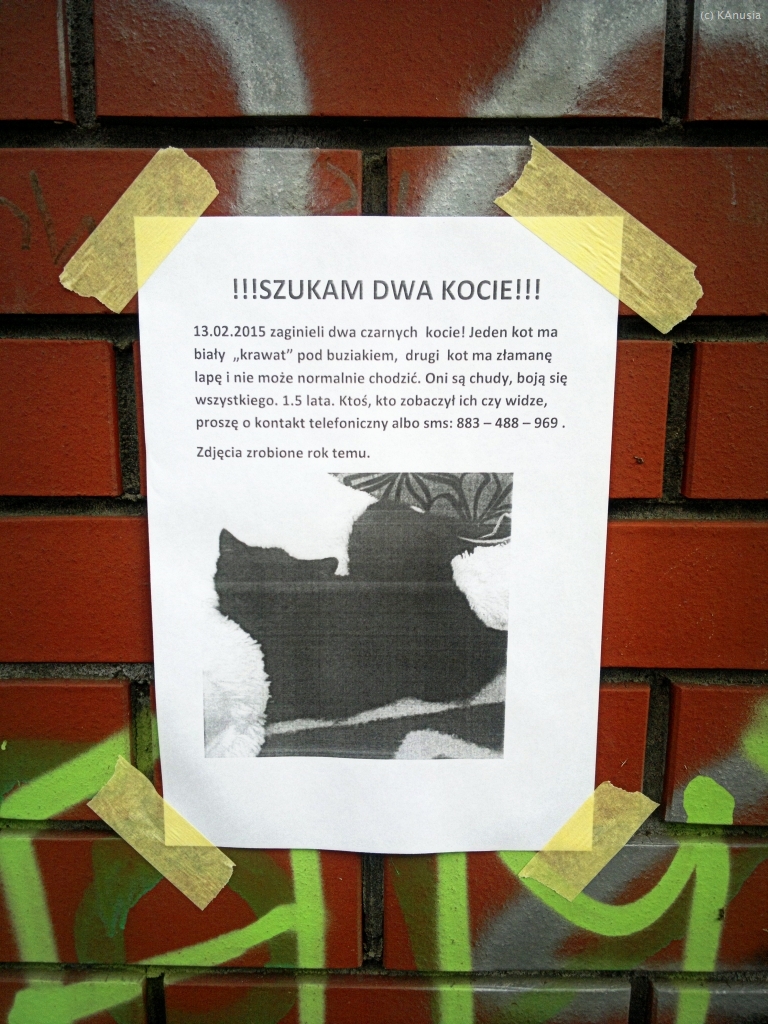 (c) KAnusia
!!!SZUKAM DWA KOCIE!!!
13.02.2015 zaginieli dwa czarnych kocie! Jeden kot ma
biały „krawat” pod buziakiem, drugi kot ma złamanę
lapę i nie może normalnie chodzić. Oni są chudy, boją się
wszystkiego. 1.5 lata. Ktoś, kto zobaczył ich czy widze,
proszę o kontakt telefoniczny albo sms: 883 – 488 – 969 .
Zdjęcia zrobione rok temu.